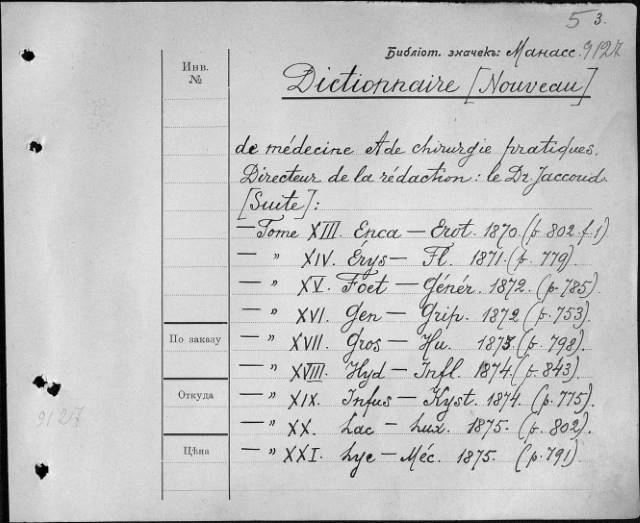 5 3.
Библіот. значекъ: Манасс. 9127
Инв.
№
Dictionnaire [Nouveau]
de médecine & de chirurgie pratiques.
Directeur de la rédaction: le Dr. Jaccoud.
[Suite]:
— Tome XIII. Enca — Erot. 1870. (p. 802. f. 1)
— " XIV. Érys — Fl. 1871. (p. 779).
— " XV. Foet — Génér. 1872. (p. 785).
— " XVI. Gen — Grip. 1872 (p. 753).
По заказу — " XVII. Gros — Hu. 1873. (p. 798).
— " XVIII. Hyd — Infl. 1874. (p. 843).
Откуда — " XIX. Infus — Kyst. 1874. (p. 775).
9127 — " XX. Lac — Lux. 1875. (p. 802).
Цѣна — " XXI. Lyc — Méc. 1875. (p. 791)